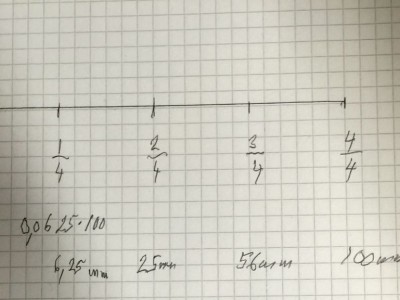 1/4 2/4 3/4 4/4
0,0625·100
6,25mm 25mm 56mm 100mm